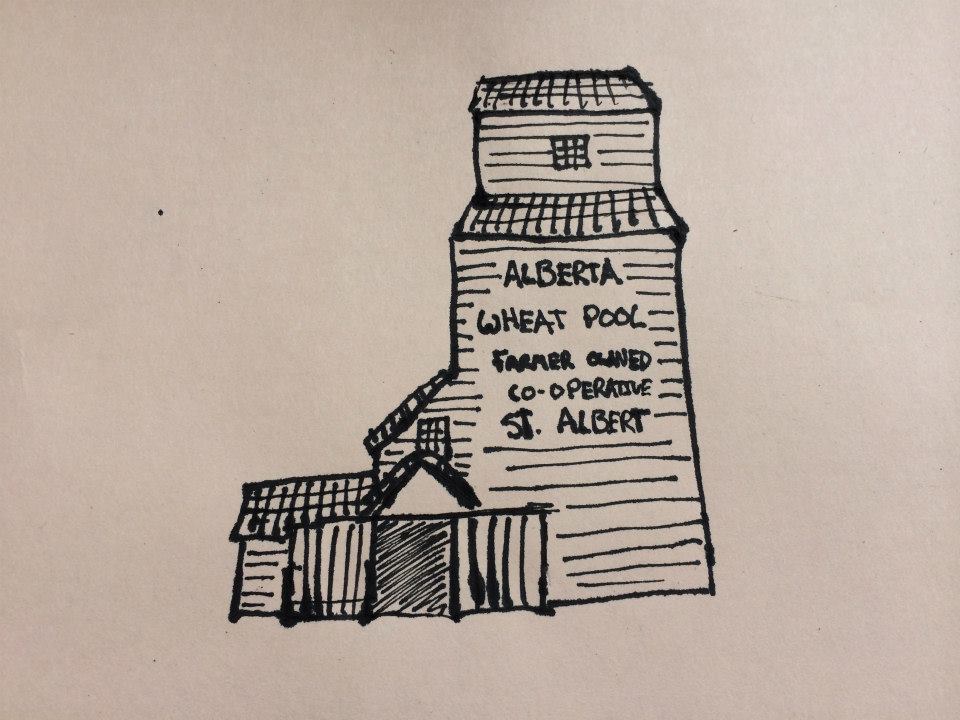 ALBERTA
WHEAT POOL
FARMER OWNED
CO-OPERATIVE
ST. ALBERT